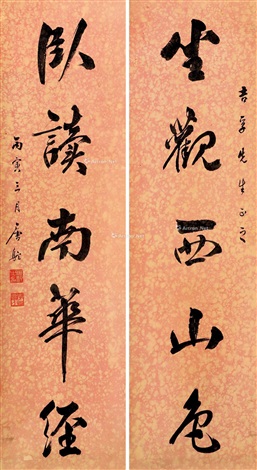 吉孚先生正之
坐觀西山色
臥讀南華經
丙寅三月唐駝